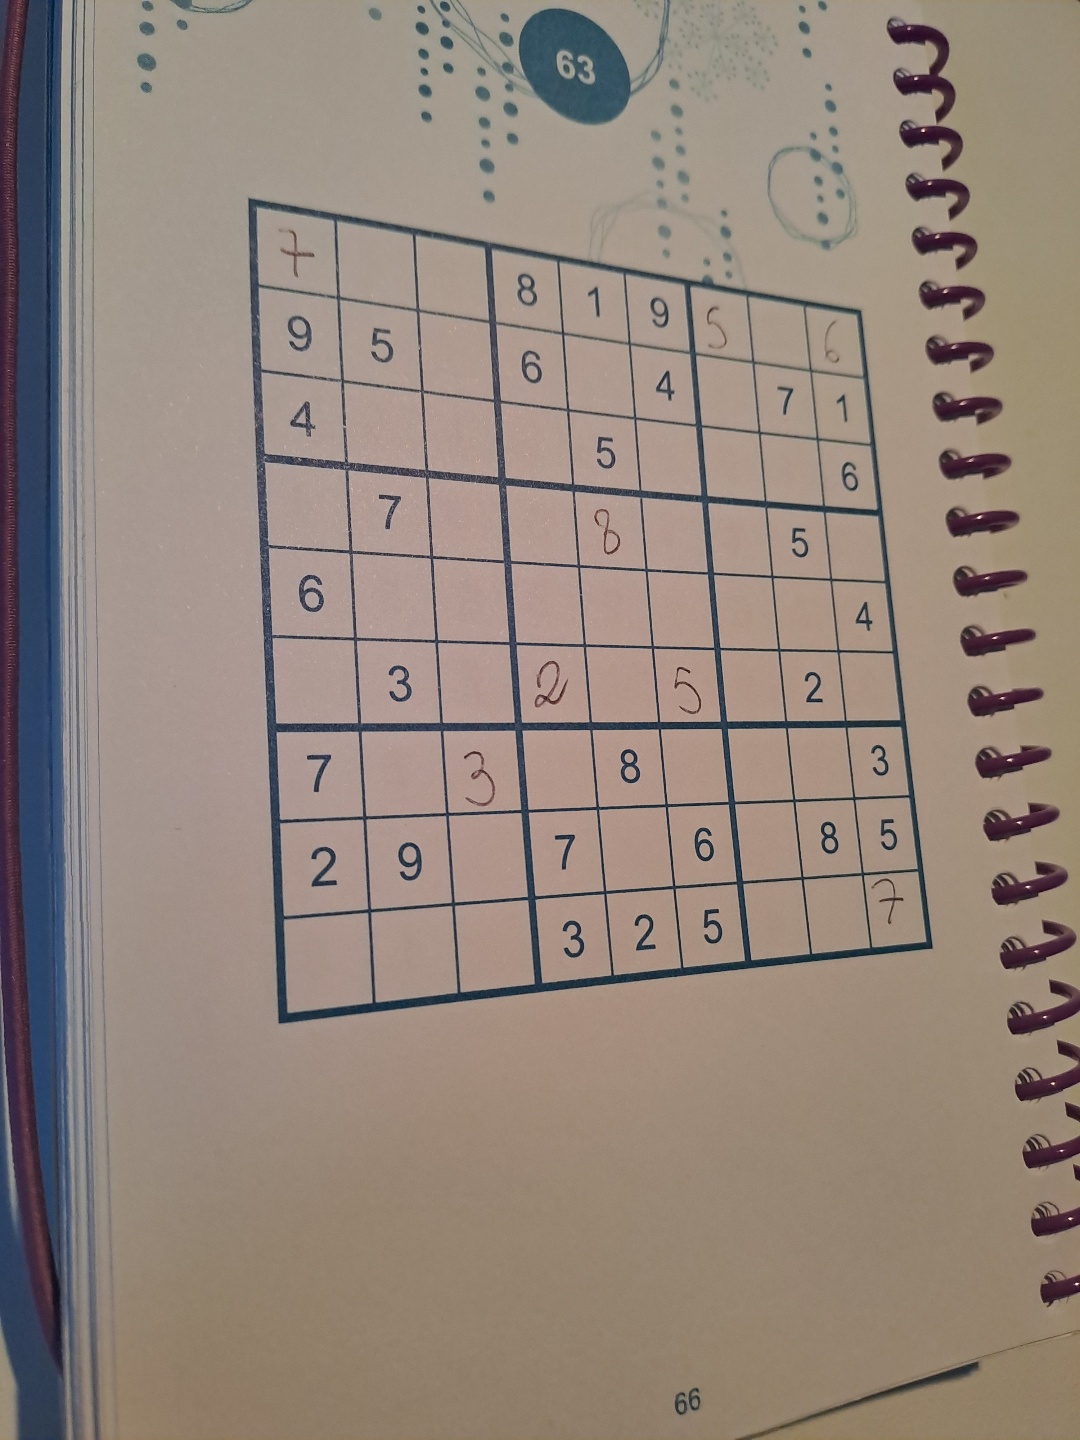 63
7 8 1 9 5 6
9 5 6 4 7 1
4 5 6
7 8 5
6 4
3 2 5 2
7 3 8 3
2 9 7 6 8 5
3 2 5 7
66